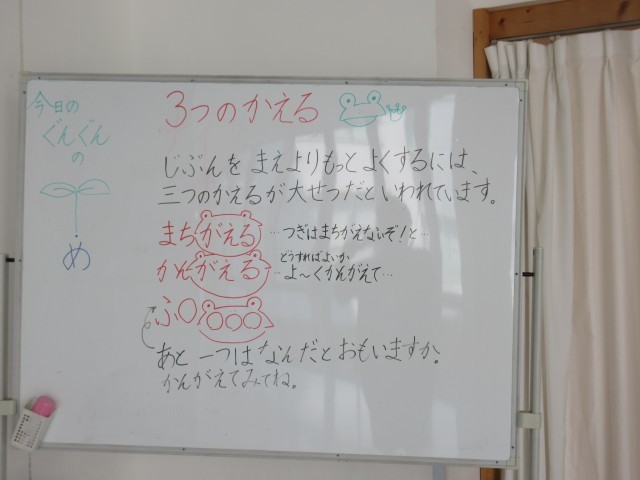 今日の
ぐんぐん
の
め
3つのかえる
じぶんを まえよりもっと よくするには、
三つのかえるが大せつだといわれています。
まちがえる …つぎはまちがえないぞ!と…
どうすればよいか
かんがえる …よ〜くかんがえて…
ふ〇〇〇〇
あと 一つはなんだとおもいますか。
かんがえてみてね。